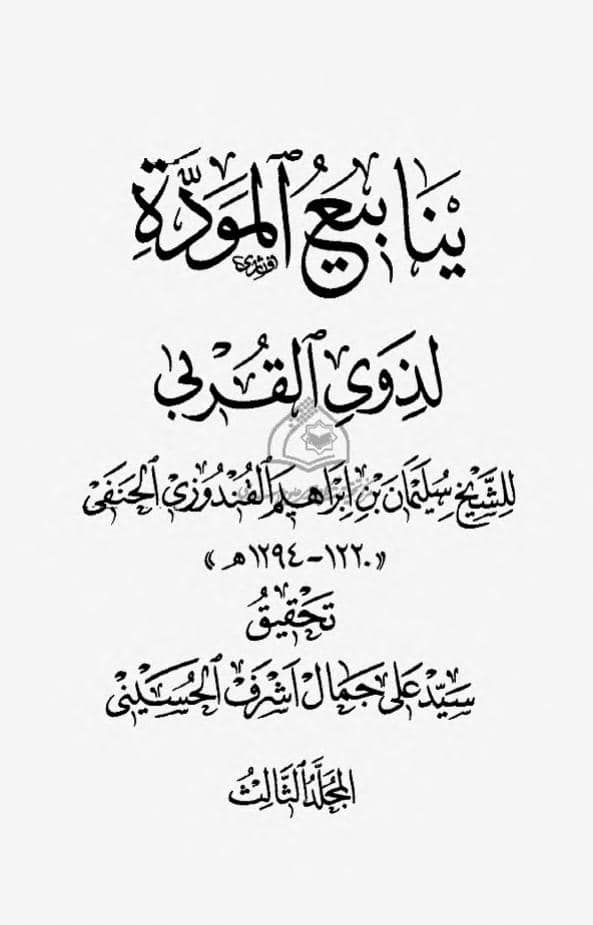 يَنَابِيعُ ٱلْمَوَدَّةِ
لِذَوِي ٱلْقُرْبَىٰ
لِلشَّيْخِ سُلَيْمَان بْنِ إِبْرَاهِيم ٱلْقُنْدُوزِي ٱلْحَنَفِي
«١٢٢٠-١٢٩٤ه‍»
تَحْقِيقُ
سَيِّد عَلِي جَمَال أَشْرَف ٱلْحُسَيْنِي
ٱلْمُجَلَّدُ ٱلثَّالِثُ